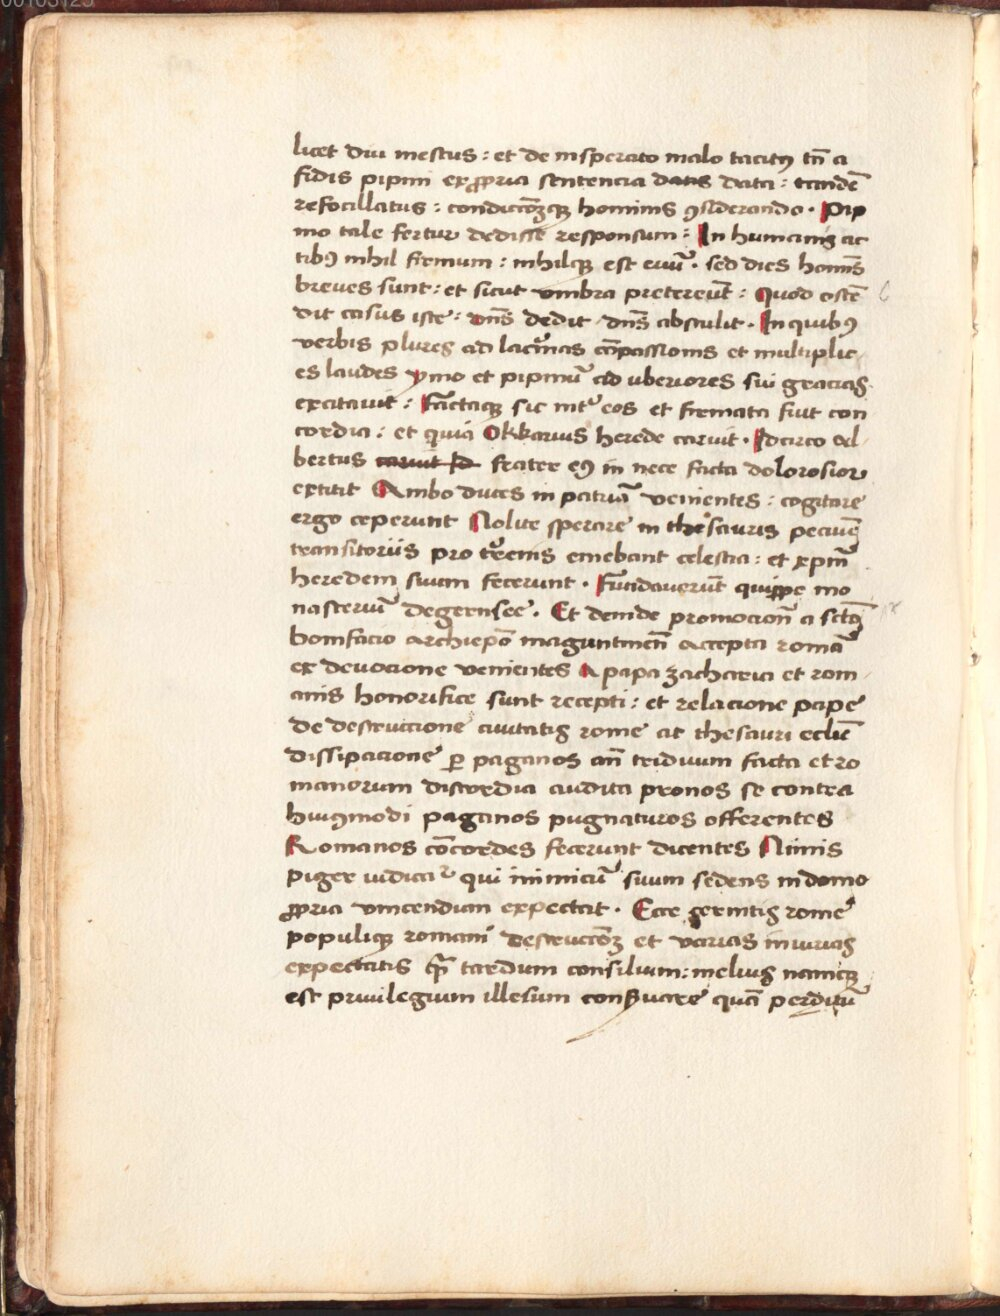 00103125
licet diu mestus : et de insperato malo tacitꝰ tn̄ a
fidis pipini ex ꝓpria sentencia datis data : tandē
refocillatus : condiccōꝫqꝫ hominis ꝯsiderando . Pip
ino tale fertur dedisse responsum : In humanis ac
tibꝰ nihil firmum : nihilqꝫ est euū . sed dies homīs
breues sunt : et sicut vmbra pretereūt : Quod ostē
dit casus iste : dn̄s dedit dn̄s abstulit . In quibꝰ
verbis plures ad lacrimas cōpassionis et multiplic
es laudes ymo et pipinū ad vberiores sui gracias
excitauit : Factaqꝫ sic int̾ eos et firmata fuit con
cordia : et quia Okkarius herede caruit . Idcirco ad
bertus caruit Id frater eꝰ in nece facta dolorosior
extitit Ambo duces in patriā venientes : cogitare
ergo ceperunt Nolite sperare in thesauris pecunie
transitoriis pro t̾renis emebant celestia : et xpm̄
heredem suum fecerunt . Fundauerūt quippe mo
nasteriū degernsee . Et deinde promocion̄ a sctō
bonifacio archiepō maguntinen̄ accepta romā
ex deuocione venientes A papa zacharia et rom
anis honorifice sunt recepti : et relacione pape
de destruccione ciuitatis rome ac thesauri ecclie
dissipacione ꝑ paganos an̄ triduum facta et ro
manorum discordia audita pronos se contra
huiꝰmodi paganos pugnaturos offerentes
Romanos cōcordes fecerunt dicentes Nimis
piger iudicat᷑ qui inimicū suum sedens in domo
ꝓpria vincendum expectat . Ecce gerintis rome
populiqꝫ romani destruccōꝫ et varias iniurias
expectatis tardum consilium : melius namqꝫ
est priuilegium illesum conseruare quā perditū